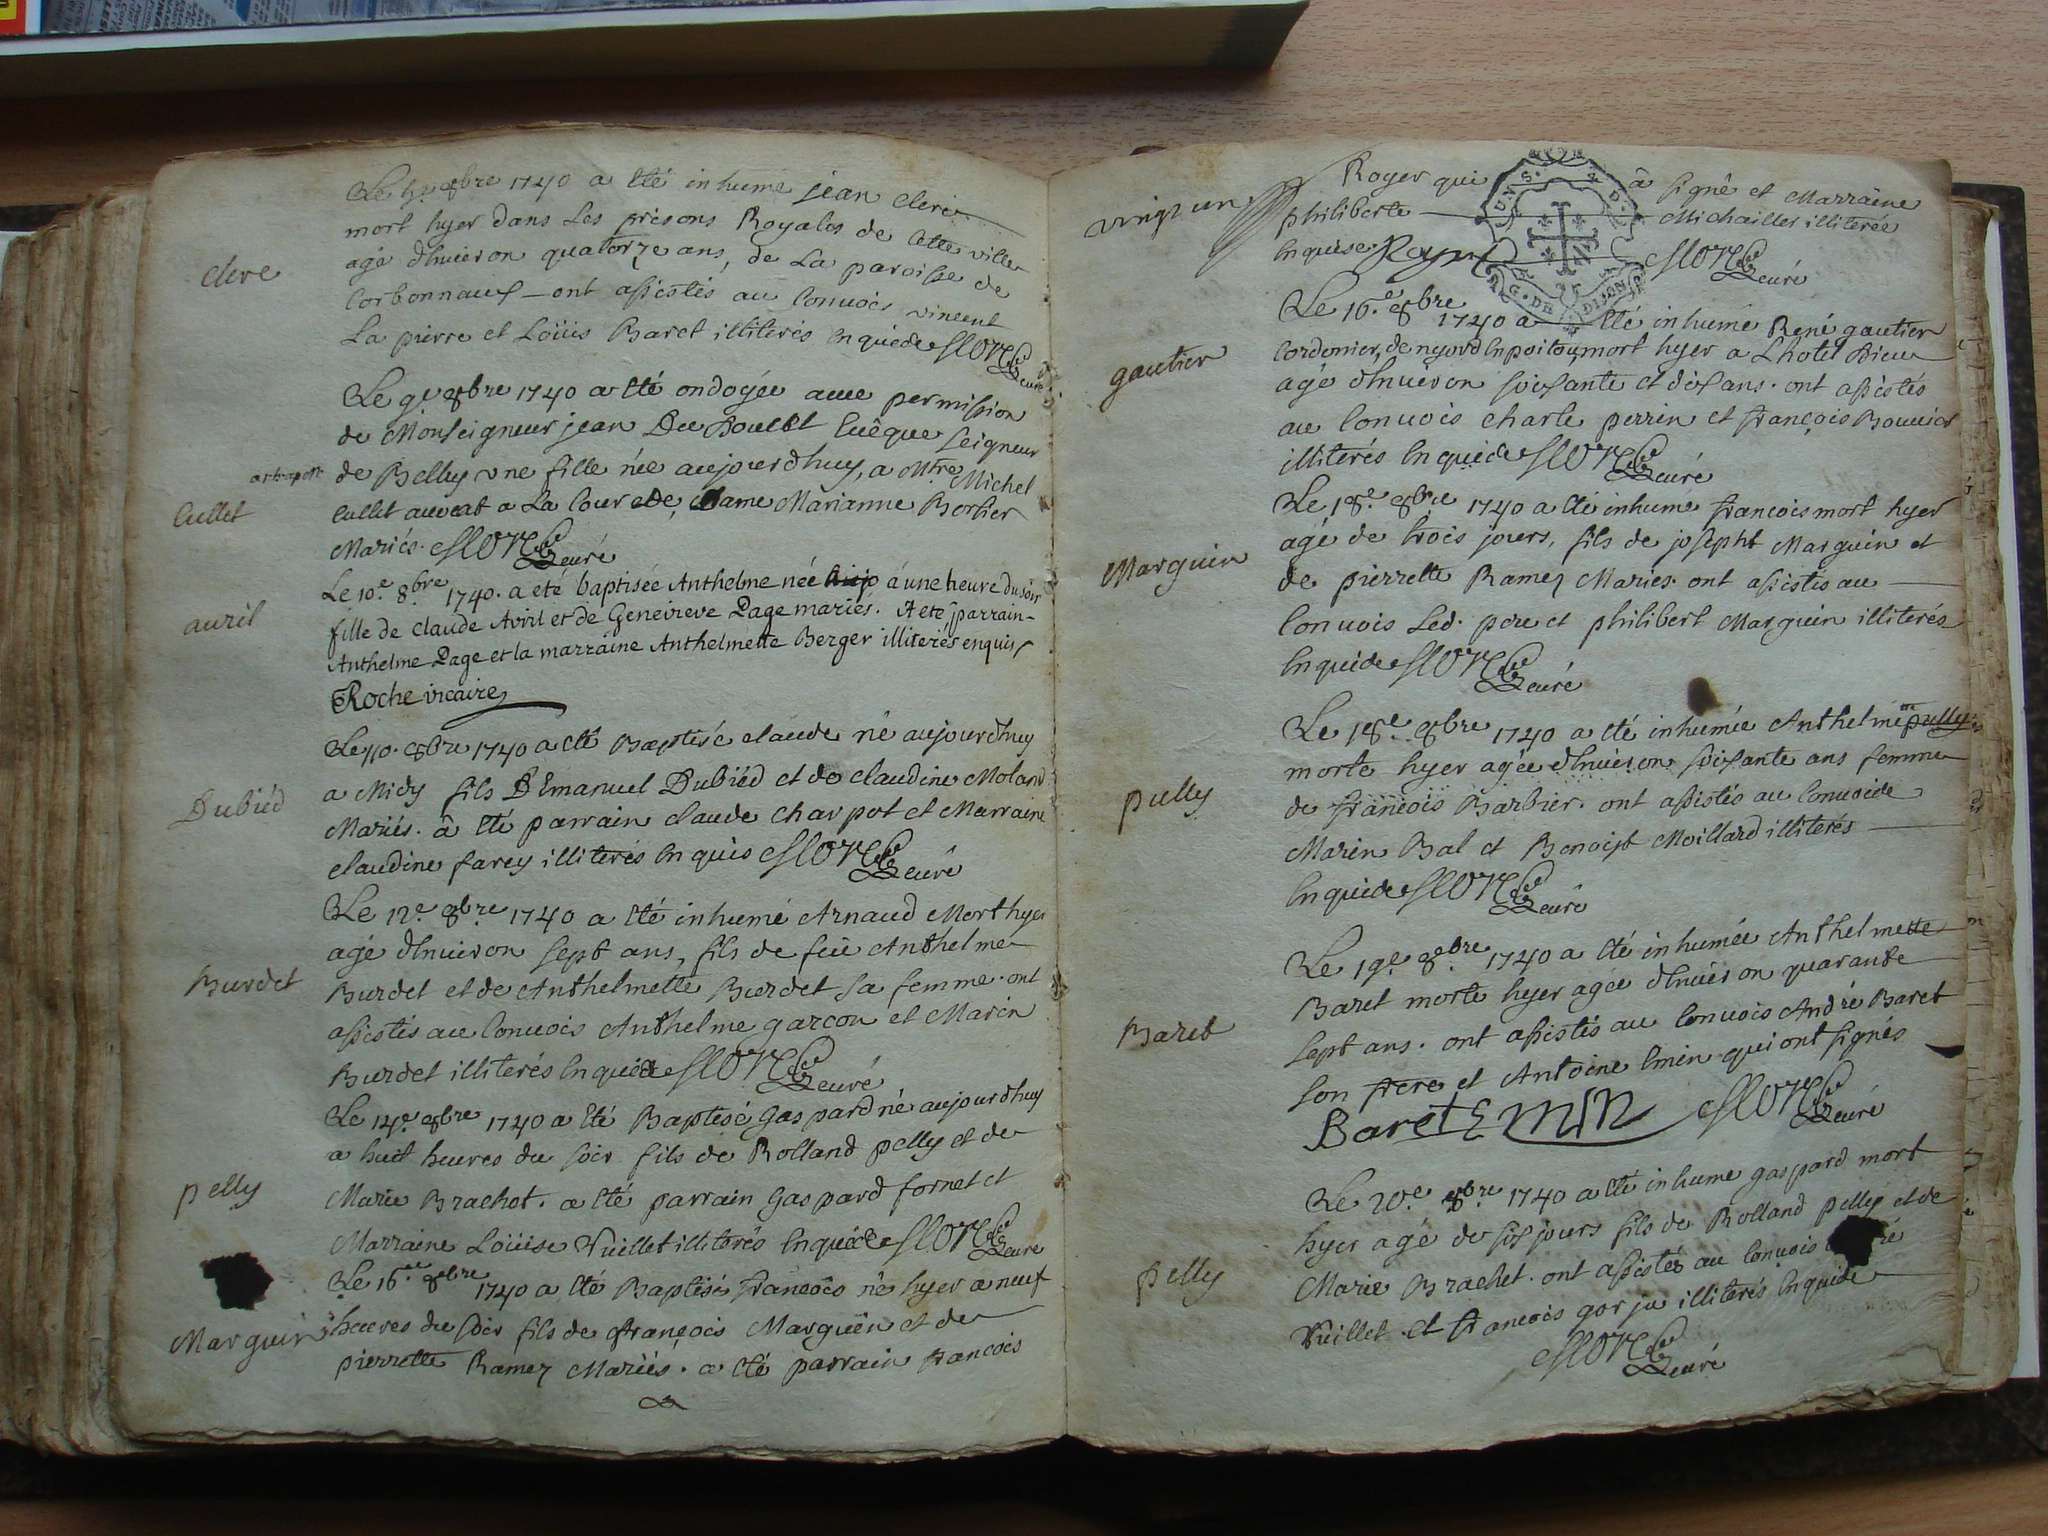 Le 8bre 1740 a êté inhumé jean clerc
mort hyer dans Les prisons Royales de cette ville
clerc
agé d'Environ quatorze ans, de La paroisse de
Corbonnaux - ont assistés au Convois vincent
La pierre et Loüis Baret illiterés Enquis de
curé
Le 9e 8bre 1740 a êté ondoyée avec permission
de Monseigneur jean Du Doucet Evêque Seigneur
de Belley une fille née aujourdhuy, a Mtre Michel
Cullet
Cullet avocat a La Cour et de Dame Marianne Bortier
Mariés.
curé
Le 10.e 8bre 1740. a eté baptisée Anthelme née à une heure du soir
avril
fille de Claude Avril et de Genevieve Page mariés. A eté parrain
Anthelme Page et la marraine Anthelmette Berger illiterés enquis
Roche vicaire
Le 10. 8bre 1740 a eté Baptisé claude né aujourdhuy
a Midy fils D'Emanuel Dubiéd et de claudine Moland
Dubiéd
Mariés. â êté parrain claude charpot et Marraine
claudine farcy illiterés Enquis
curé
Le 12e 8bre 1740 a êté inhumé Arnaud Mort hyer
agé d'Environ sept ans, fils de feü Anthelme
Burdet
Burdet et de Anthelmette Burdet sa femme. ont
assistés au Convois Anthelme garcon et Marin
Burdet illiterés Enquis de
curé
Le 14e 8bre 1740 a êté Baptisé Gaspard né aujourdhuy
a huit heures du soir fils de Rolland pelly et de
pelly
Marie Brachet. a êté parrain Gaspard fornet et
Marraine Loüise Vuillet illiterés Enquis de
curé
Le 16e 8bre 1740 a êté Baptisé francois né hyer a neuf
Marguin
heures du soir fils de françois Marguin et de
pierrette Ramez Mariés. a êté parrain francois
vingt un
Roger qui â signé et Marraine
philiberte Michailles illiterée
Enquise. Roger
curé
Le 16.e 8bre 1740 a êté inhumé René gautier
Cordonier, de nyord En poitou mort hyer a L'hotel Dieu
gautier
agé d'Environ soixante et dix ans. ont assistés
au Convois charle perrin et françois Bouvier
illiterés Enquis de
curé
Le 18.e 8bre 1740 a êté inhumé francois mort hyer
agé de trois jours, fils de joseph Marguin et
Marguin
de pierrette Ramez Mariés. ont assistés au
Convois Led. pere et philibert Marguin illiterés
Enquis de
curé
Le 18e 8bre 1740 a êté inhumée Anthelme pully
morte hyer agée d'Environ soixante ans femme
pully
de françois Barbier. ont assistés au Convois de
Marin Bal et Benoist Moillard illiterés
Enquis de
curé
Le 19e 8bre 1740 a êté inhumée Anthelmette
Baret morte hyer agée d'Environ quarante
Baret
sept ans. ont assistés au Convois André Baret
son frere et Antoine Emin qui ont signés
Baret Emin
curé
Le 20e 8bre 1740 a êté inhumé gaspard mort
hyer agé de six jours fils de Rolland pelly et de
pelly
Marie Brachet. ont assistés au Convois
Vuillet et francois gorju illiterés Enquis de
curé